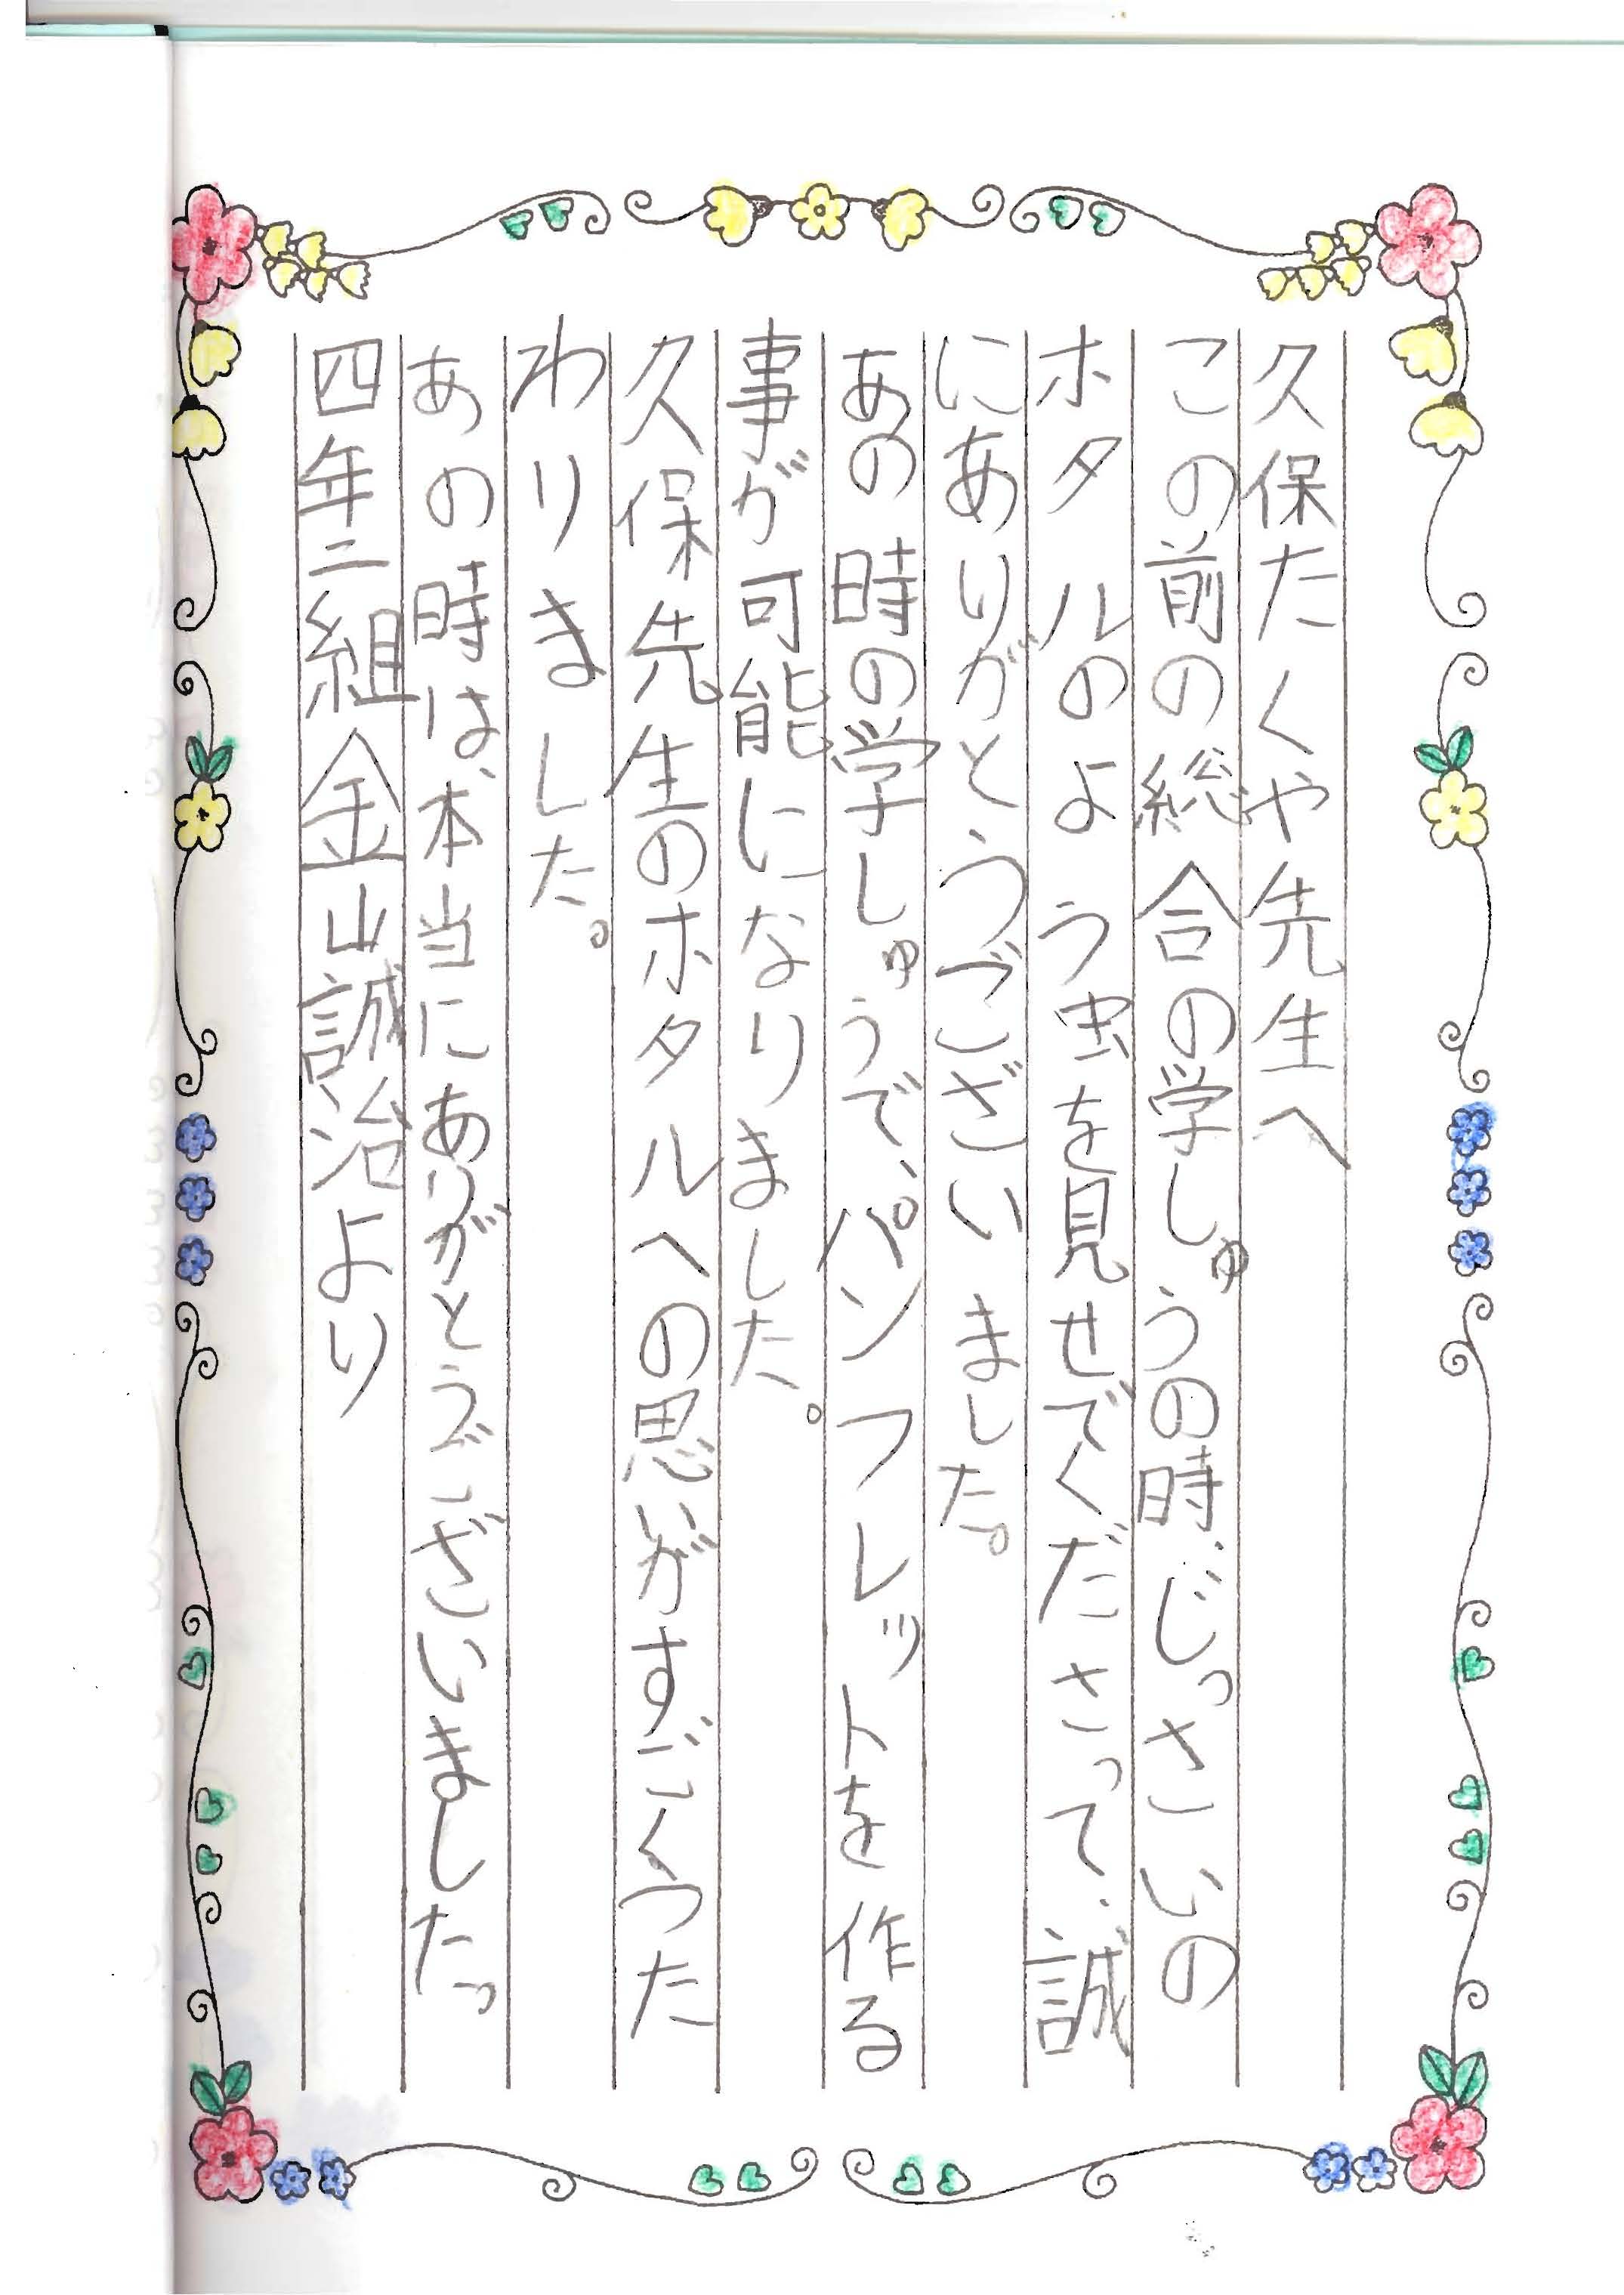 久保たくや先生へ
この前の総合の学しゅうの時、じっさいの
ホタルのよう虫を見せでくださって、誠
にありがとうございました。
あの時の学しゅうで、パンフレットを作る
事が可能になりました。
久保先生のホタルへの思いがすごくつた
わりました。
あの時は、本当にありがとうございました。
四年二組金山誠治より